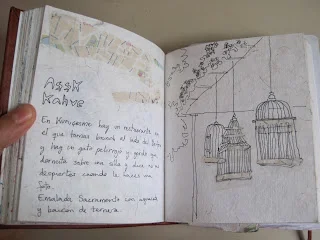 Assk
Kahve
En Kuruçesme hay un restaurante en
el que tomas brunch al lado del
y hay un gato pelirrojo y gordo que
dormita sobre una silla y que ni se
despierta cuando le haces una
foto.
Ensalada Sacramento con aguacate
y baicon de ternera.